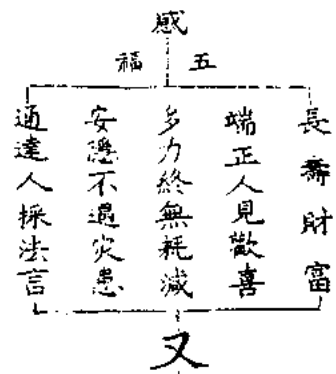 感
五福
長壽財富
端正人見歡喜
多力終無耗減
安隱不遇灾患
通達人採法言
又